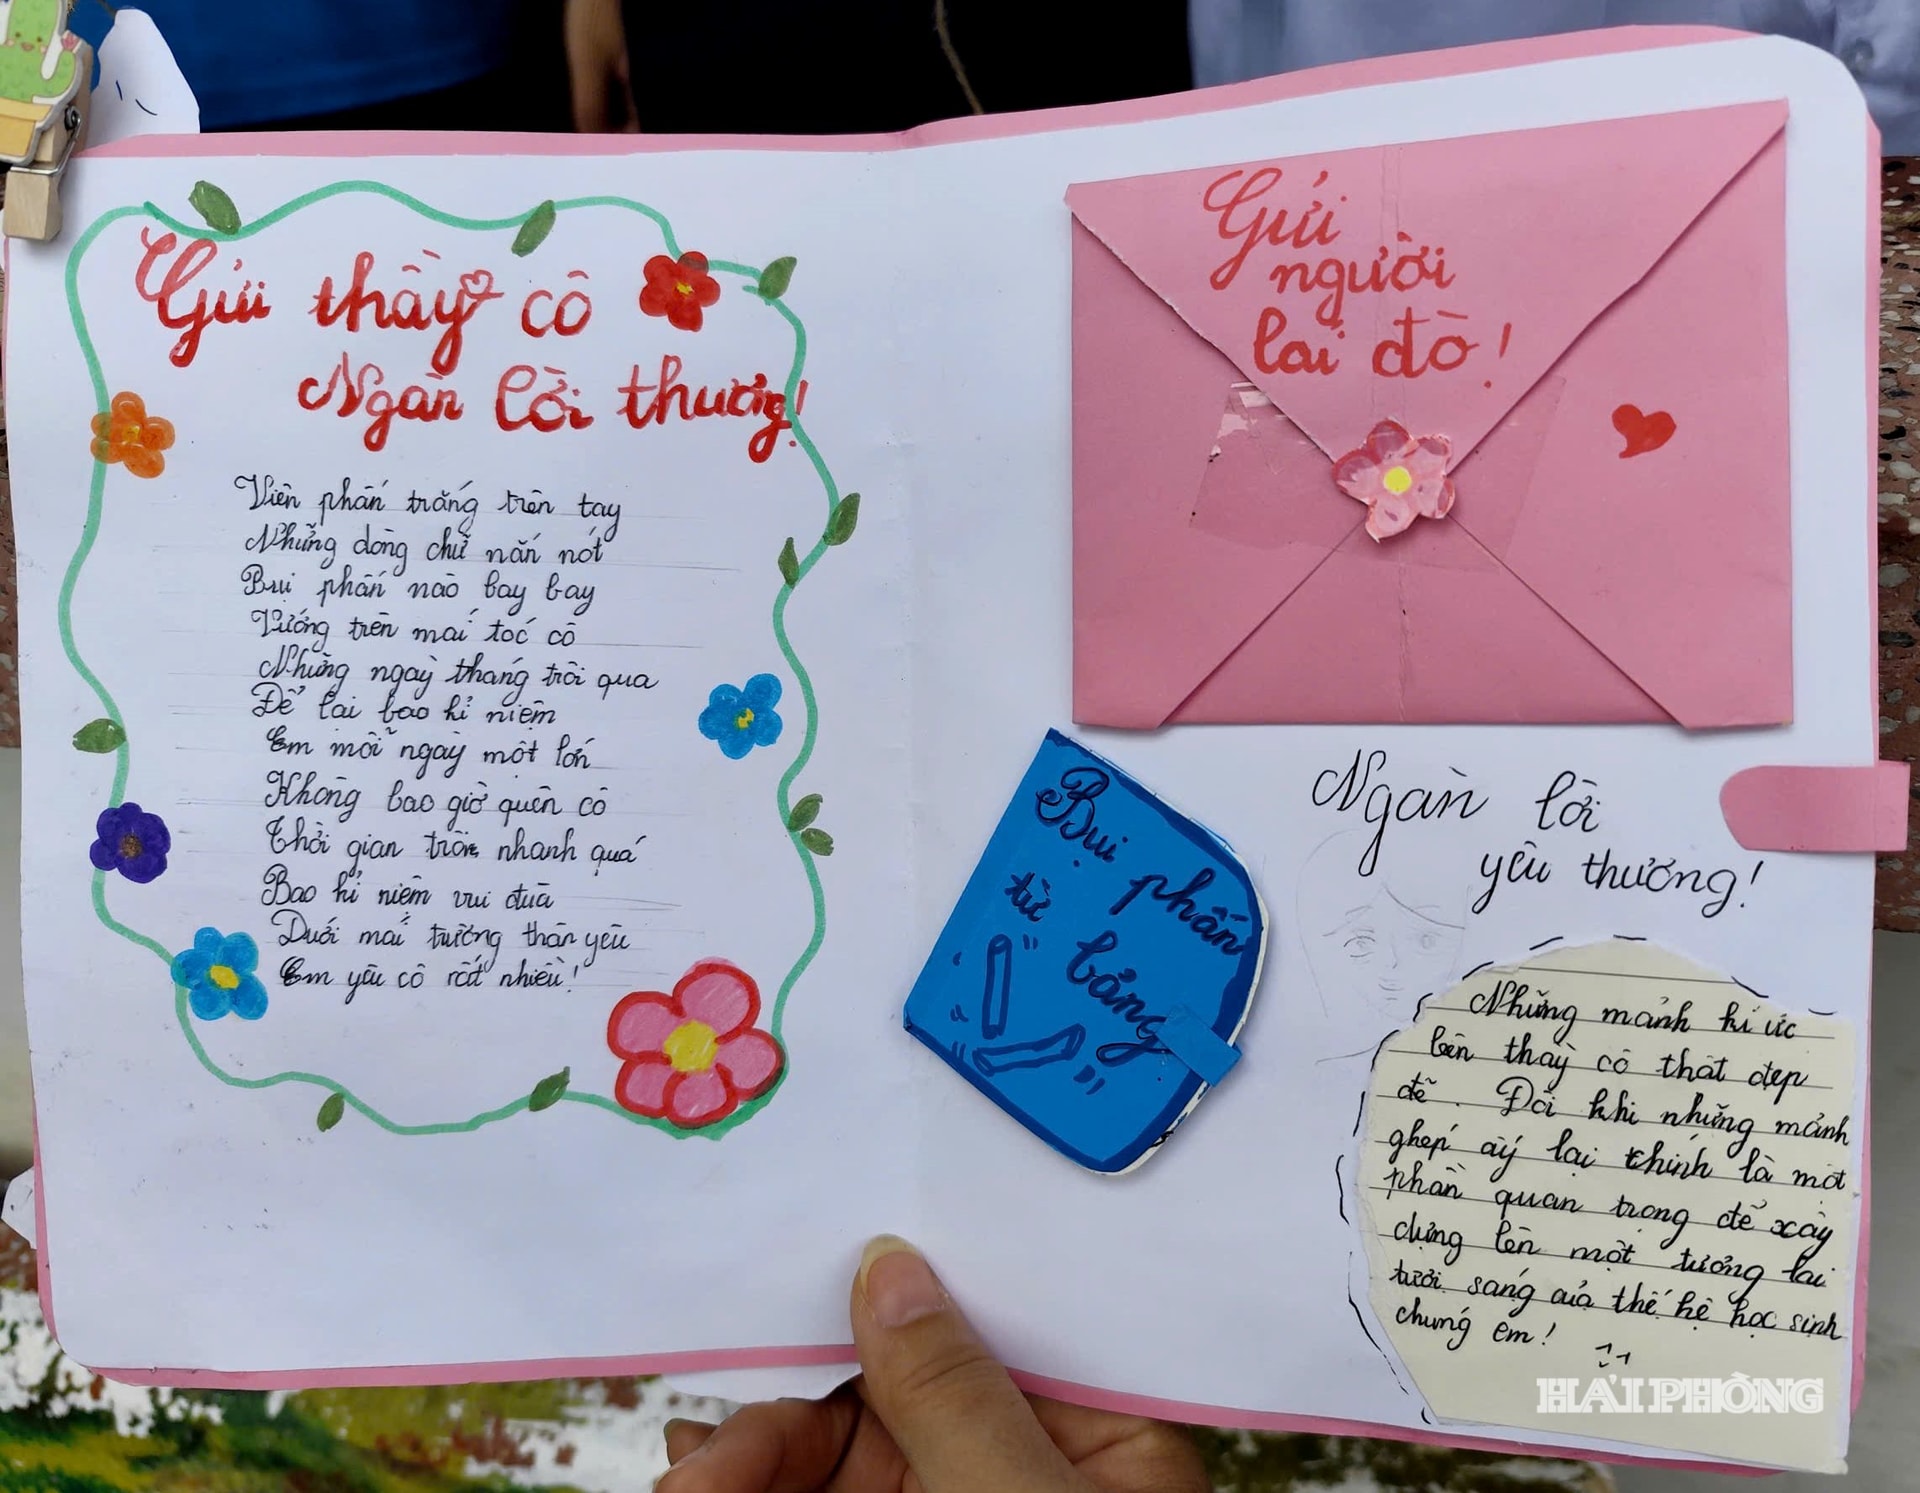 Gửi thầy cô
Ngàn lời thương!
Viên phấn trắng trên tay
Những dòng chữ nắn nót
Bụi phấn nào bay bay
Vướng trên mái tóc cô
Những ngày tháng trôi qua
Để lại bao kỉ niệm
Em mỗi ngày một lớn
Không bao giờ quên cô
Thời gian trôi nhanh quá
Bao kỉ niệm vui đùa
Dưới mái trường thân yêu
Em yêu cô rất nhiều!
Gửi
người
lái đò!
Bụi phấn
từ bảng
Ngàn lời
yêu thương!
Những mảnh kí ức
bên thầy cô thật đẹp
đẽ. Đôi khi những mảnh
ghép ấy lại chính là một
phần quan trọng để xây
dựng lên một tương lai
tươi sáng của thế hệ học sinh
chúng em!
HẢI PHÒNG